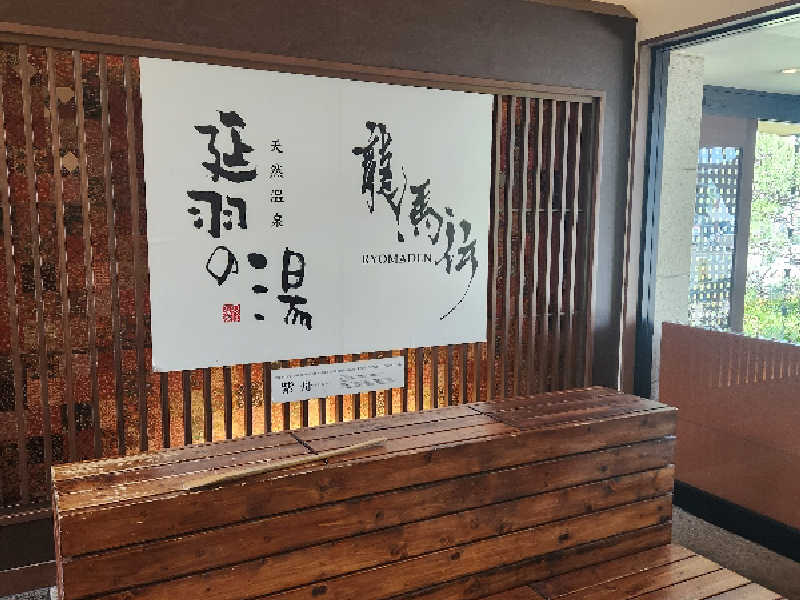 龍馬伝
RYOMADEN
天然温泉
延羽の湯
紫舟